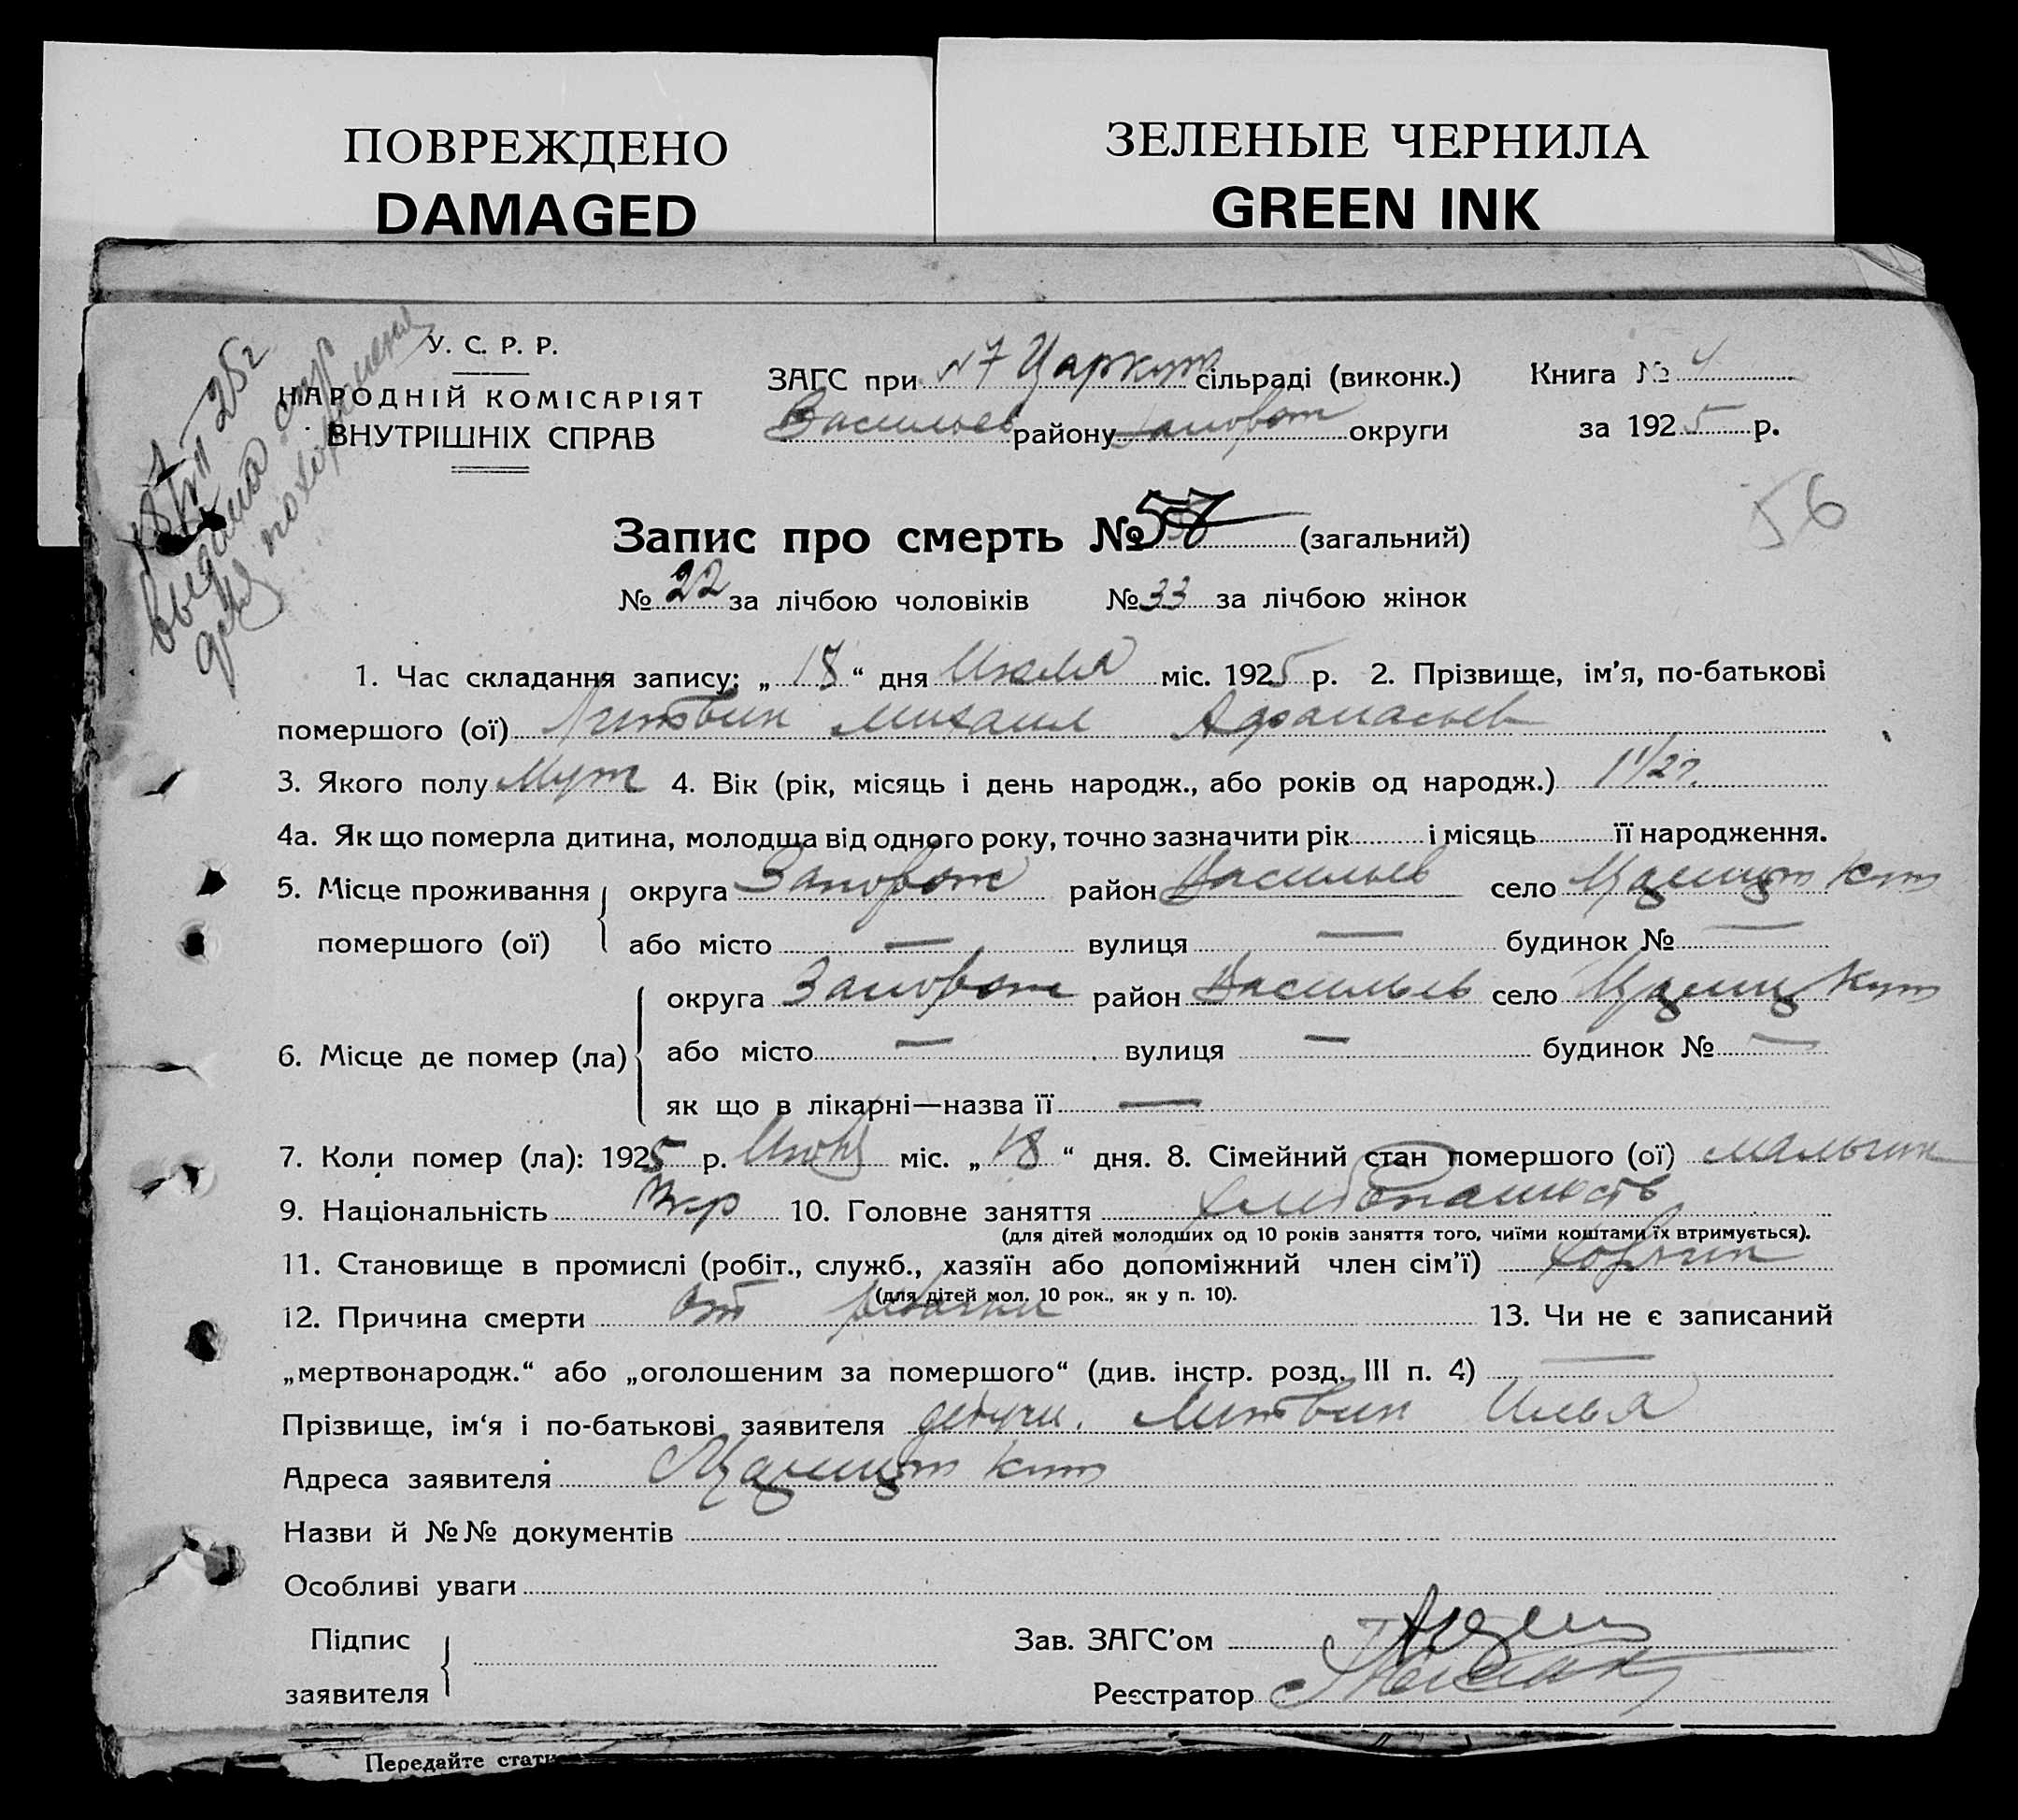 ПОВРЕЖДЕНО
DAMAGED
ЗЕЛЕНЫЕ ЧЕРНИЛА
GREEN INK
У. С. Р. Р.
НАРОДНІЙ КОМІСАРІЯТ
ВНУТРІШНІХ СПРАВ
18/VII 25г
выдана спр
для похоронения
ЗАГС при №7 Царкут сільраді (виконк.)
Васильев району Запорож округи
Книга № 4
за 1925 р.
56
Запис про смерть № 57 (загальний)
№ 22 за лічбою чоловіків № 33 за лічбою жінок
1. Час складання запису: „ 18 “ дня Июля міс. 1925 р. 2. Прізвище, ім’я, по-батькові
помершого (ої) Литвин Михаил Афанасьев
3. Якого полу Муж 4. Вік (рік, місяць і день народж., або років од народж.) 1 1/2 г.
4а. Як що померла дитина, молодща від одного року, точно зазначити рік і місяць її народження.
5. Місце проживання округа Запорож район Васильев село Царицын Кут
помершого (ої) або місто — вулиця — будинок № —
округа Запорож район Васильев село Цариц Кут
6. Місце де помер (ла) або місто — вулиця — будинок № —
як що в лікарні—назва її —
7. Коли помер (ла): 1925 р. міс. „ 18 “ дня. 8. Сімейний стан помершого (ої) мальчик
9. Національність Укр 10. Головне заняття хлебопашество
(для дітей молодших од 10 років заняття того, чиїми коштами їх втримується).
11. Становище в промислі (робіт., служб., хазяїн або допоміжний член сім’ї)
(для дітей мол. 10 рок., як у п. 10).
12. Причина смерти от 13. Чи не є записаний
„мертвонародж.“ або „оголошеним за помершого“ (див. інстр. розд. III п. 4) —
Прізвище, ім‘я і по-батькові заявителя Литвин Илья
Адреса заявителя Царицын Кут
Назви й №№ документів
Особливі уваги
Підпис
заявителя
Зав. ЗАГС’ом
Реєстратор
Передайте стати